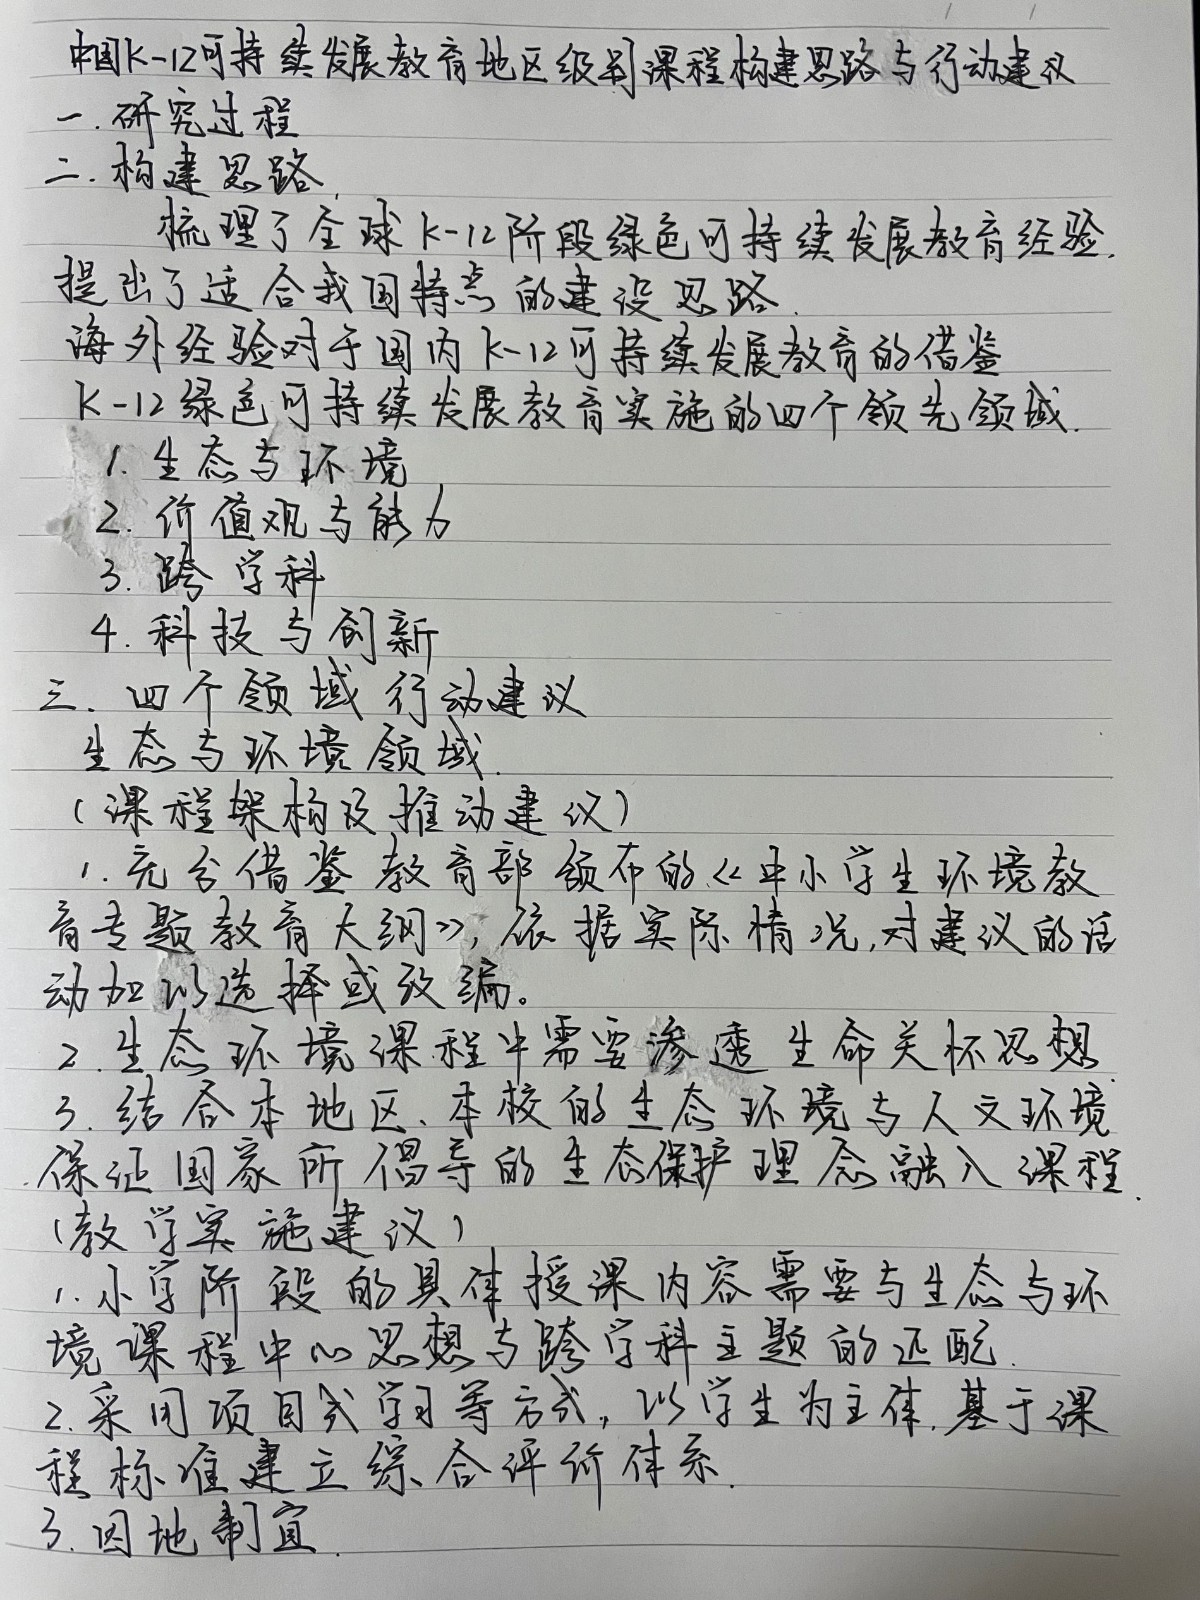 中国K-12可持续发展教育地区级别课程构建思路与行动建议
一.研究过程
二.构建思路.
梳理了全球K-12阶段绿色可持续发展教育经验.
提出了适合我国特点的建设思路.
海外经验对于国内K-12可持续发展教育的借鉴
K-12绿色可持续发展教育实施的四个领先领域.
1.生态与环境
2.价值观与能力
3.跨学科
4.科技与创新
三.四个领域行动建议
生态与环境领域.
(课程架构及推动建议)
1.充分借鉴教育部颁布的《中小学生环境教
育专题教育大纲》,依据实际情况,对建议的活
动加以选择或改编。
2.生态环境课程中需要渗透生命关怀思想.
3.结合本地区、本校的生态环境与人文环境
保证国家所倡导的生态保护理念融入课程.
(教学实施建议)
1.小学阶段的具体授课内容需要与生态与环
境课程中心思想与跨学科主题的匹配.
2.采用项目式学习等方式,以学生为主体.基于课
程标准建立综合评价体系.
3.因地制宜.